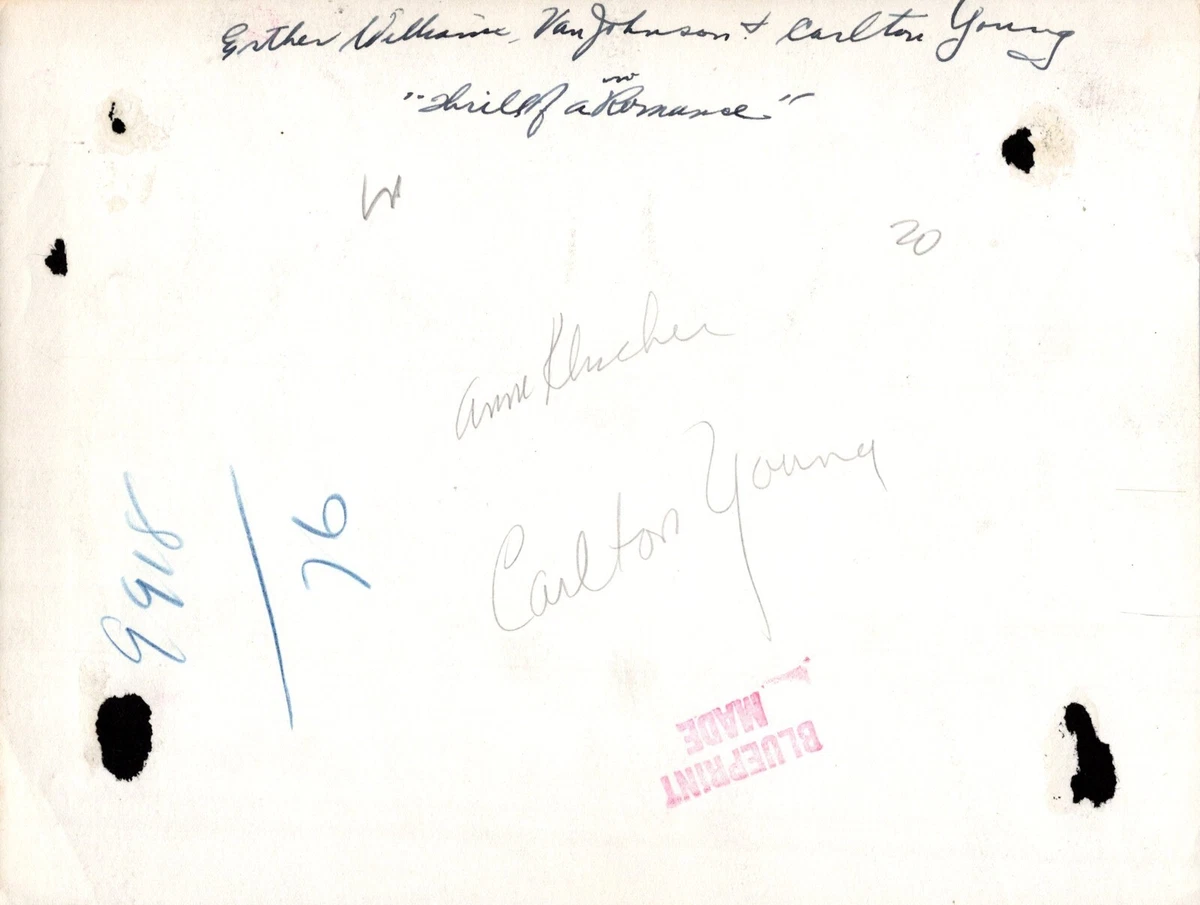 Esther Williams, Van Johnson + Carlton Young
"Thrill of a Romance"
20
Carlton Young
9918
76
BLUEPRINT
MADE